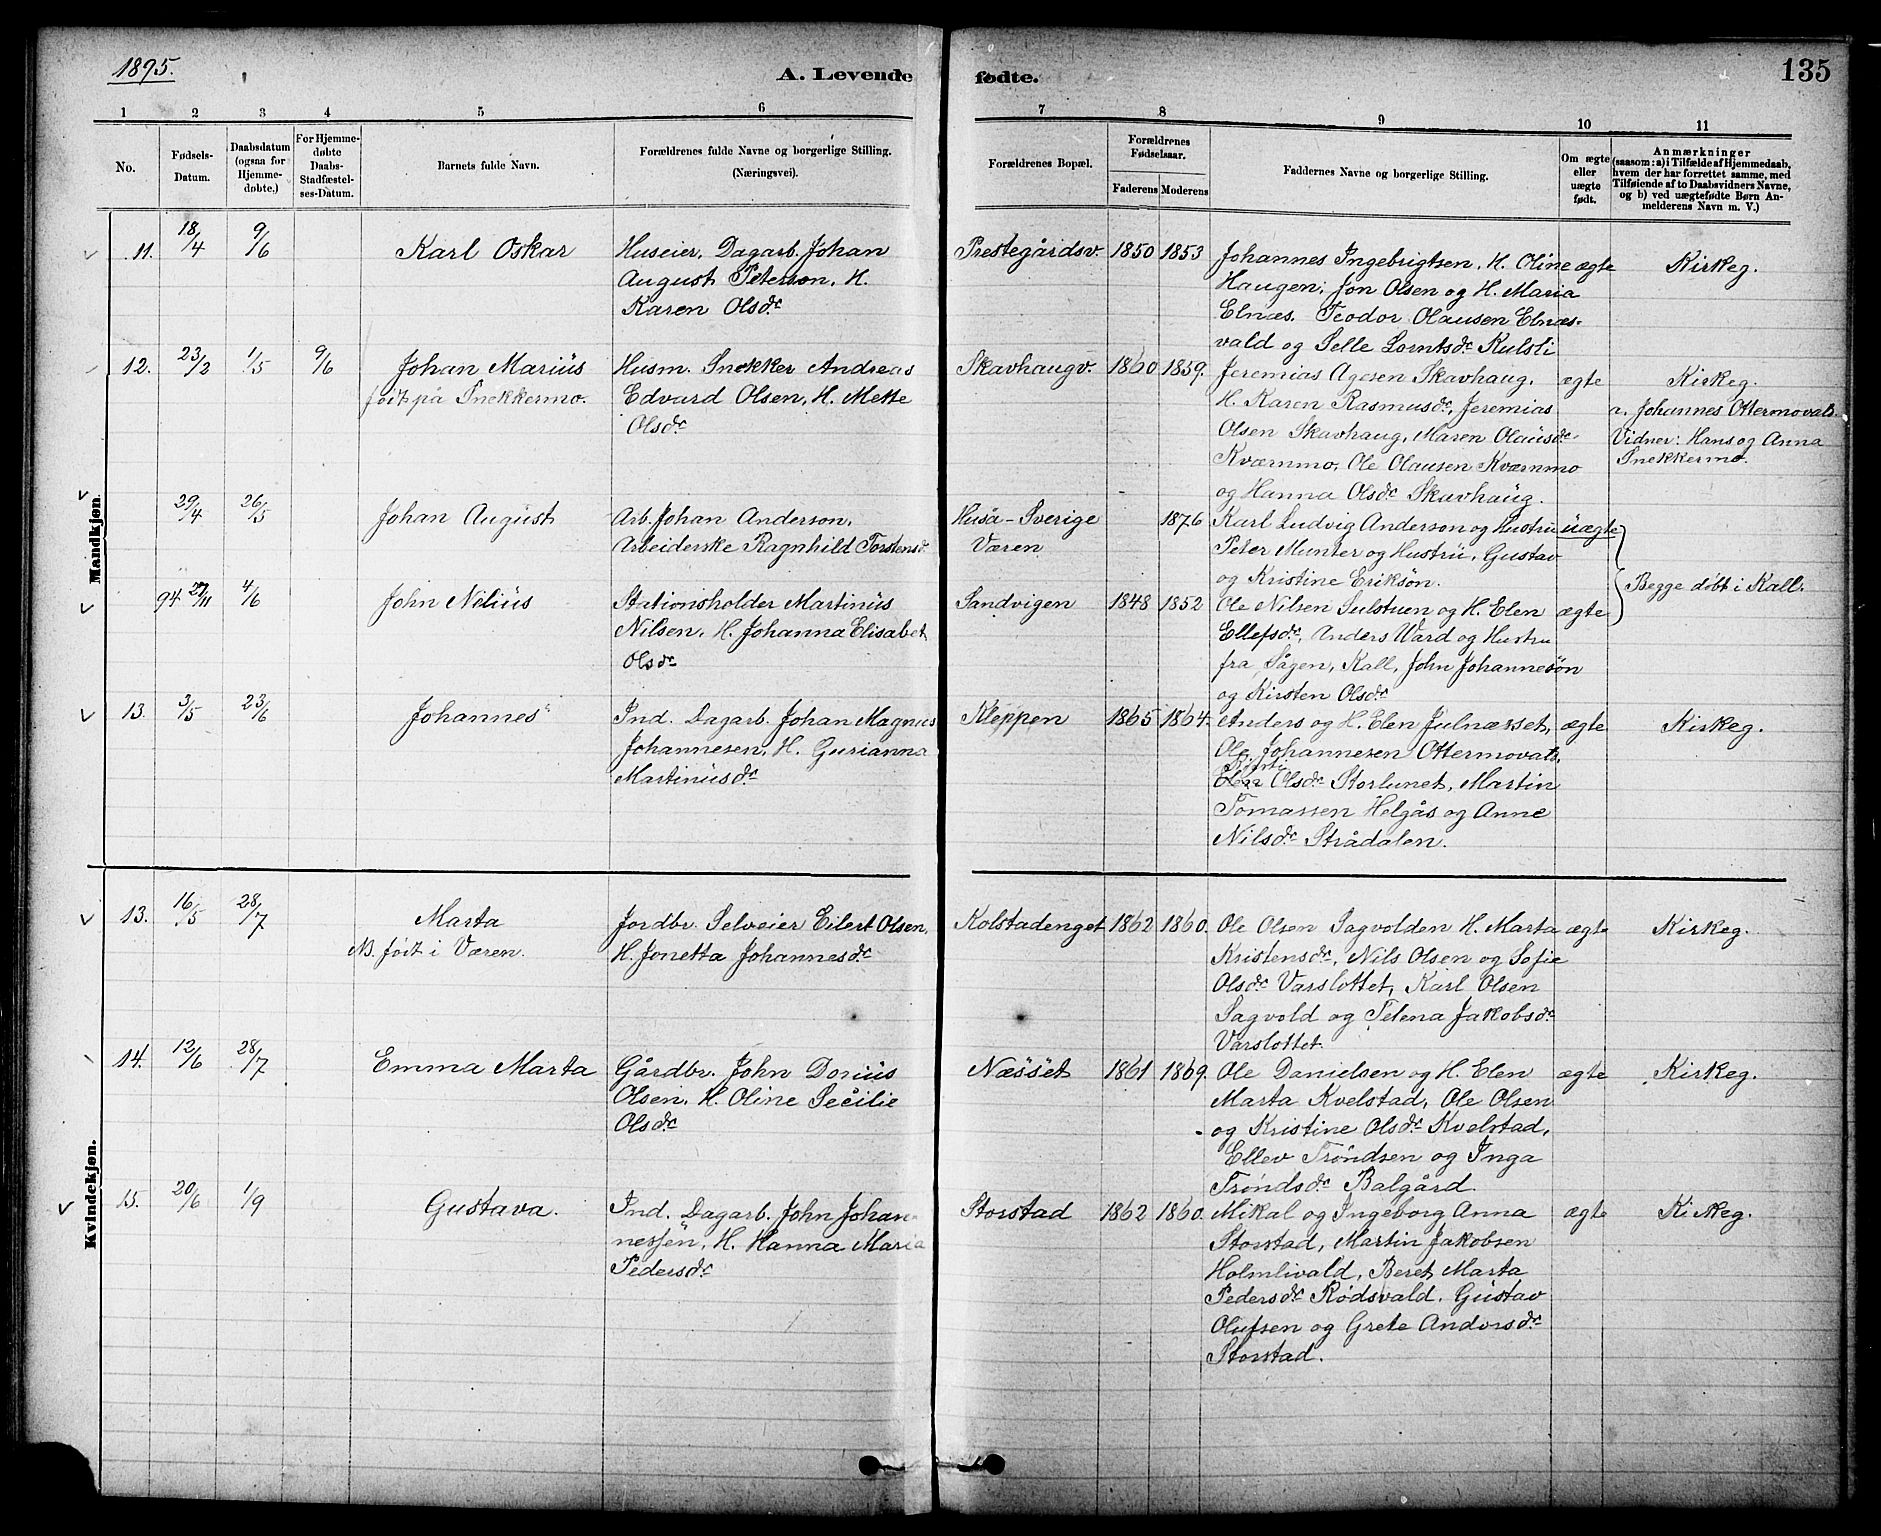 1895.
A. Levende fødte.
135
1 2 3 4 5 6 7 8 9 10 11
No.
Fødsels-
Datum.
Daabsdatum
(ogsaa for
Hjemme-
døbte.)
For Hjemme-
døbte
Daabs-
Stadfæstel-
ses-Datum.
Barnets fulde Navn.
Forældrenes fulde Navne og borgerlige Stilling.
(Næringsvei).
Forældrenes Bopæl.
Forældrenes
Fødselsaar.
Faderens Moderens
Faddernes Navne og borgerlige Stilling.
Om ægte
eller
uægte
født.
Anmærkninger
(saasom: a) i Tilfælde af Hjemmedaab,
hvem der har forrettet samme, med
Tilføiende af to Daabsvidners Navne,
og b) ved uægtefødte Børn An-
melderens Navn m. V.)
Mandkjøn.
11. 18/4 9/6 Karl Oskar
Huseier, Dagarb. Johan
August Peterson, H.
Karen Olsdr
Prestegårdsv. 1850 1853
Johannes Ingebrigtsen, H. Oline
Haugen, Jon Olsen og H. Maria
Elnæs. Teodor Olausen Elnæs-
vald og Selle Lorntsdr Kulsli
ægte Kirkeg.
12. 23/2 1/5 9/6 Johan Marius
født på Snekkermo.
Husm. Snekker Andreas
Edvard Olsen, H. Mette
Olsdr
Skavhaugv. 1860 1859.
Jeremias Agesen Skavhaug.
H. Karen Rasmusdr, Jeremias
Olsen Skavhaug, Maren Olausdr
Kværnmo, Ole Olausen Kværnmo
og Hanna Olsdr Skavhaug.
ægte Kirkeg.
a. Johannes Ottermovals.
Vidner: Hans og Anna
Snekkermo.
29/4 26/5 Johan August
Arb. Johan Anderson,
Arbeiderske Ragnhild Torstensd.
Huså - Sverige
Væren
1876
Karl Ludvig Anderson og Hustru
Peter Munter og Hustru, Gustav
og Kristine Erikson.
uægte
94 27/11 4/6 John Nilius
Stationsholder Martinus
Nilsen, H. Johanna Elisabet
Olsdr
Sandvigen 1848 1852
Ole Nilsen Sulstuen og H. Elen
Ellefsdr, Anders Vard og Hustru
fra Sågen, Kall, John Johanneson
og Kirsten Olsdr
ægte
Begge døbt i Kall.
13. 3/5 23/6 Johannes
Ind. Dagarb. Johan Magnus
Johannesen, H. Gurianna
Martinusdr
Kleppen 1865 1864.
Anders og H. Elen Julnæsset,
Ole Johannesen Ottermovals,
Kirsti
Elen Olsdr Storlunet, Martin
Tomassen Helgås og Anne
Nilsdr Strådalen.
ægte Kirkeg.
Kvindekjøn.
13. 16/5 28/7 Marta
NB. født i Væren.
Jordbr. Selveier Eilert Olsen,
H. Jonetta Johannesdr
Kolstadenget 1862 1860.
Ole Olsen Sagvolden H. Marta
Kristensdr, Nils Olsen og Sofie
Olsdr Varslottet, Karl Olsen
Sagvold og Telena Jakobsdr
Varslottet.
ægte Kirkeg.
14. 12/6 28/7 Emma Marta
Gårdbr. John Dorius
Olsen, H. Oline Secilie
Olsdr
Næsset 1861 1869.
Ole Danielsen og H. Elen
Marta Kvelstad, Ole Olsen
og Kristine Olsdr Kvelstad,
Ellev Trøndsen og Inga
Trøndsdr Balgård
ægte Kirkeg.
15. 20/6 1/9 Gustava.
Ind. Dagarb. John Johan-
nessen, H. Hanna Maria
Pedersdr
Storstad 1862 1860.
Mikal og Ingeborg Anna
Storstad, Martin Jakobsen
Holmlivald, Beret Marta
Pedersdr Rødsvald, Gustav
Olufsen og Grete Andorsdr
Storstad.
ægte Kirkeg.